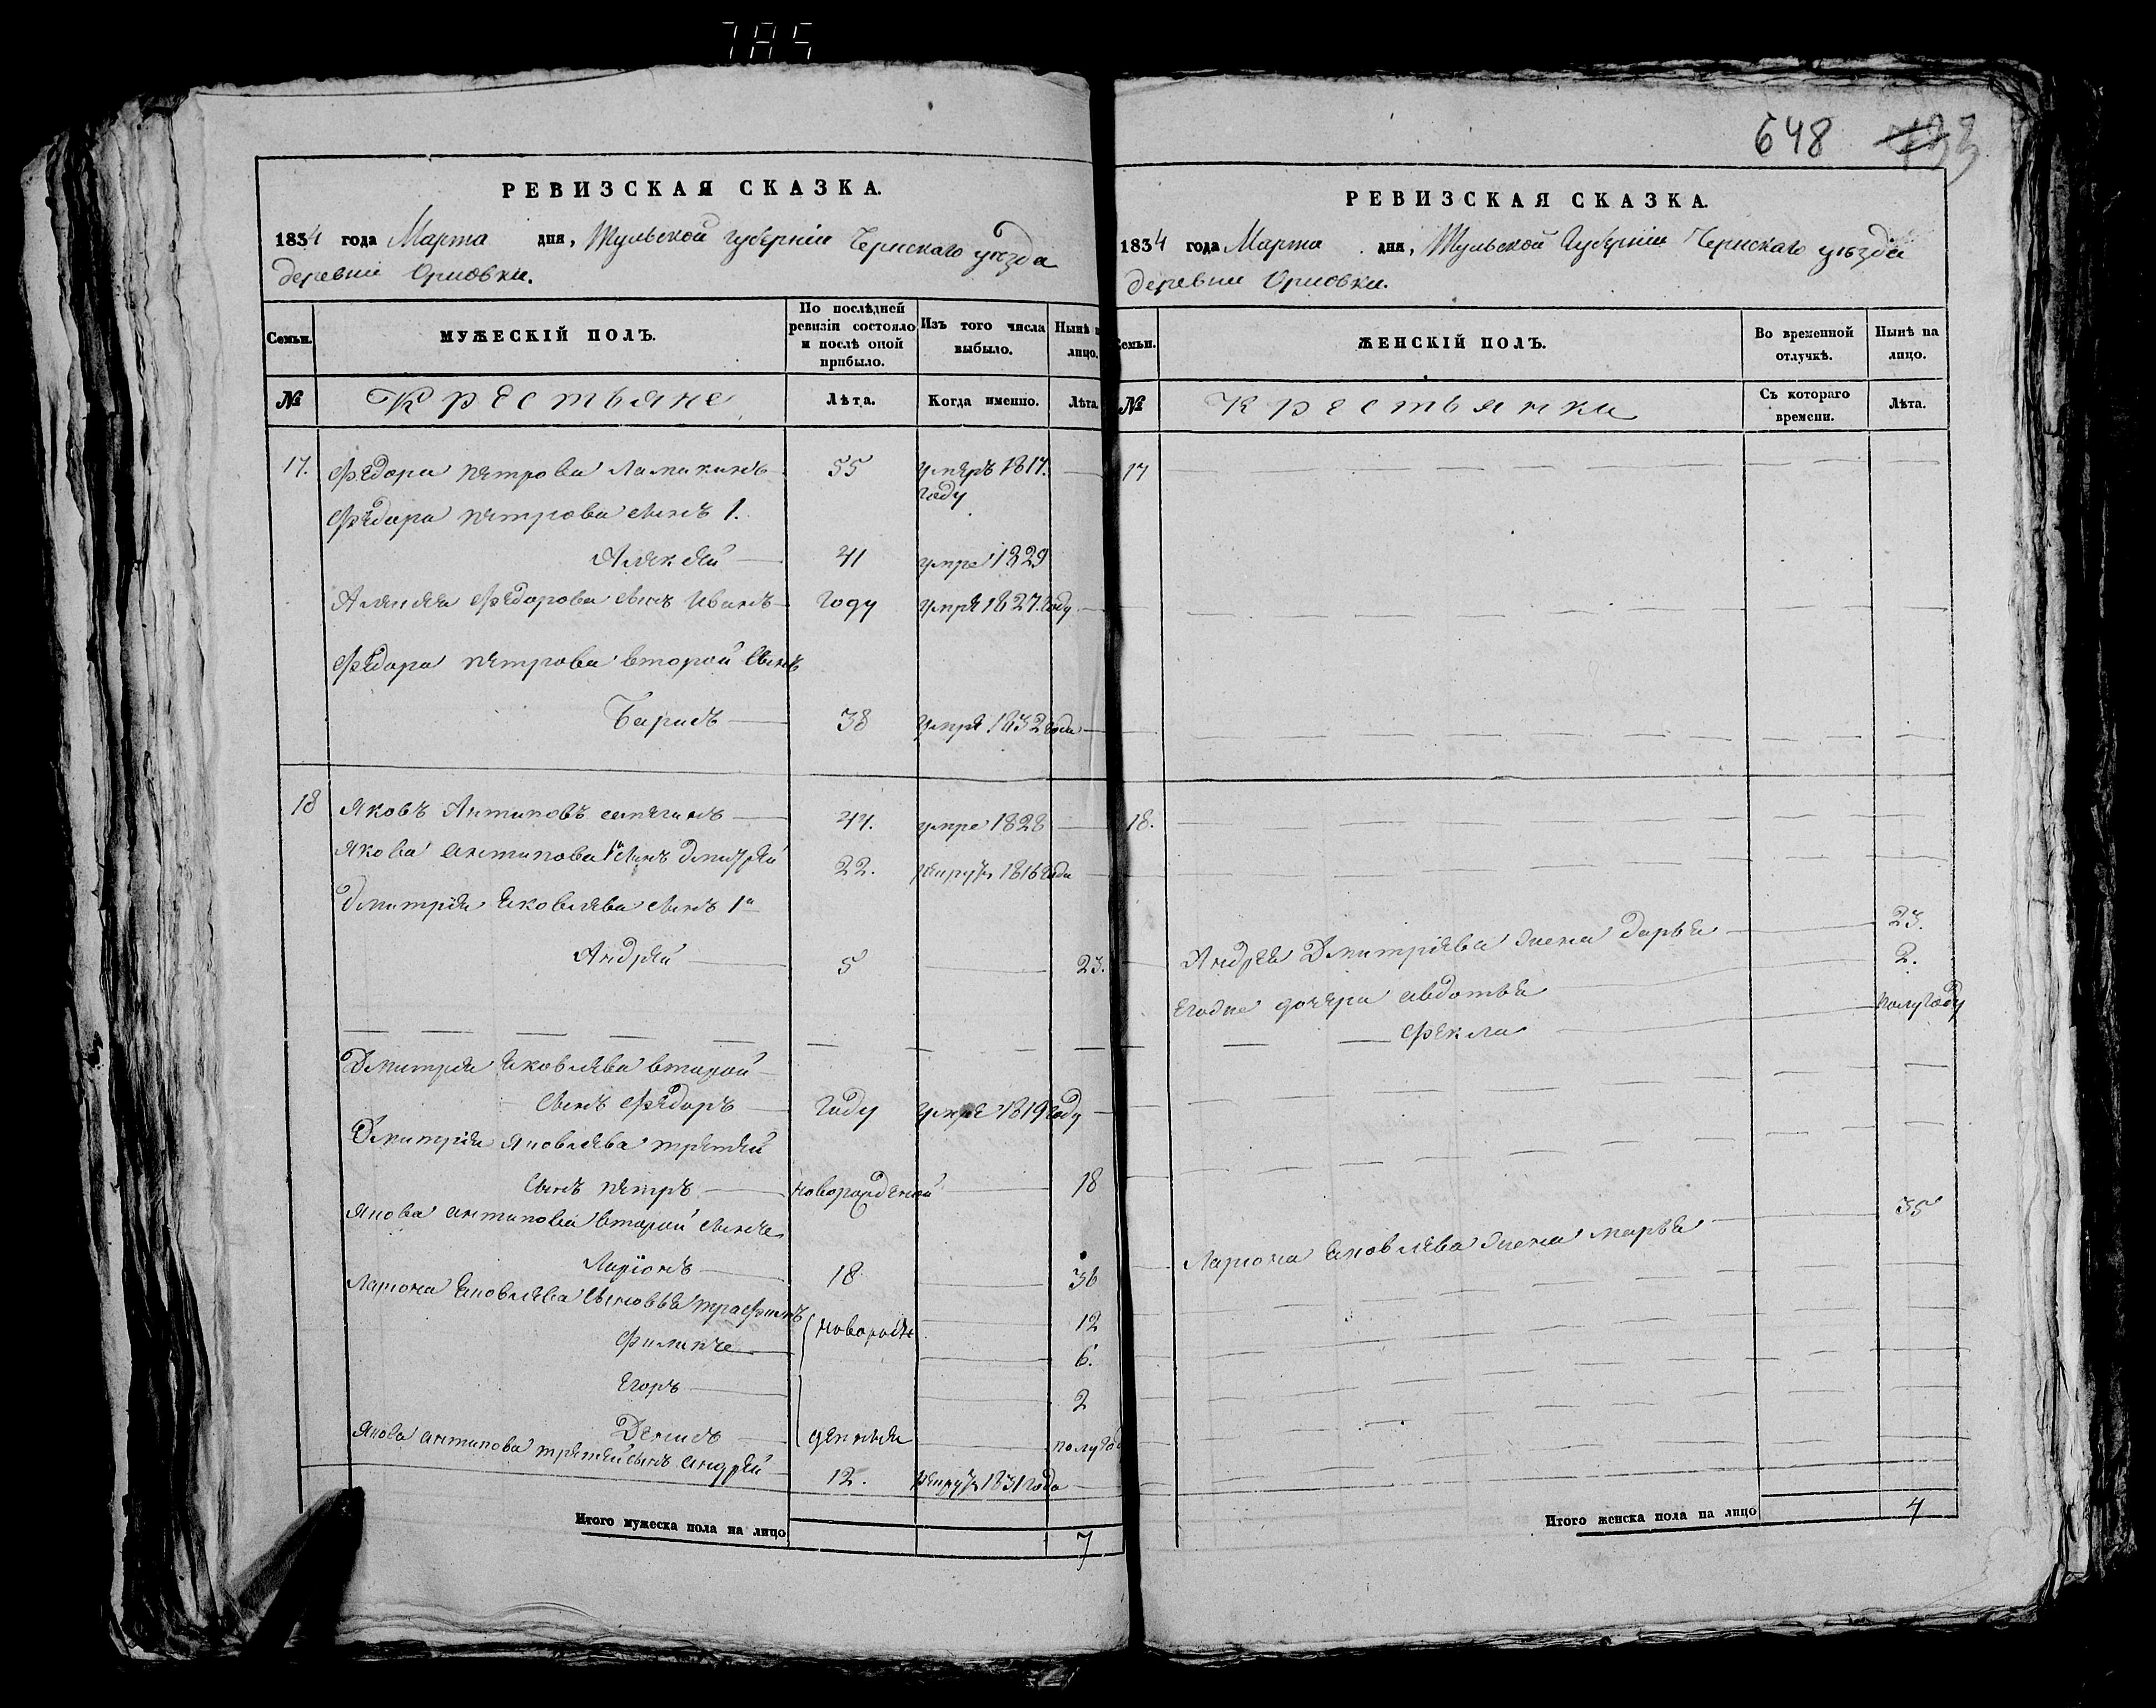 785
РЕВИЗСКАЯ СКАЗКА.
1834 года Марта дня, Тульской губернiи Чернскаго уѣзда
деревни Орловки.
Семьи.
МУЖЕСКIЙ ПОЛЪ.
По послѣдней ревизiи состояло и послѣ оной прибыло.
Изъ того числа выбыло.
Нынѣ на лицо.
№
Крестьяне
Лѣта.
Когда именно.
Лѣта.
17. Федора Петрова 55 умеръ 1817.
году
Федора Петрова сынъ 1.
Алексей 41 умре 1829
Алексея Федорова сынъ Иванъ году умре 1827. году
Федора Петрова второй сынъ
Барисъ 38 умре 1832 года
18 Яковъ Антиповъ 44. умре 1828
Якова Антипова 1й сынъ Дмитрей 22. 1816 года
Дмитрiя Яковлева сынъ 1й
Андрей 5 23.
Дмитрiя Яковлева второй
сынъ Федоръ году умре 1819 году
Дмитрiя Яковлева третей
сынъ Петръ новорожденой 18
Якова Антипова второй сынъ
Ларiонъ 18 36
Лариона Яковлева сыновья Трафимъ новорож 12
Филипъ 6.
Егоръ 2
Денисъ денныя полугод
Якова Антипова третей сынъ Андрей 12. 1831 года
Итого мужеска пола на лицо
7
648
РЕВИЗСКАЯ СКАЗКА.
1834 года Марта дня, Тульской Губернiи Чернскаго уѣзда
деревни Орловки.
Семьи.
ЖЕНСКIЙ ПОЛЪ.
Во временной отлучкѣ.
Нынѣ на лицо.
№
Крестьянки
Съ котораго времени.
Лѣта.
17
18.
Андрея Дмитрiева жена Дарья 23.
Егодне дочери Авдотья 2.
Фекла полугоду
Лариона Яковлева жена Марья 35
Итого женска пола на лицо
4